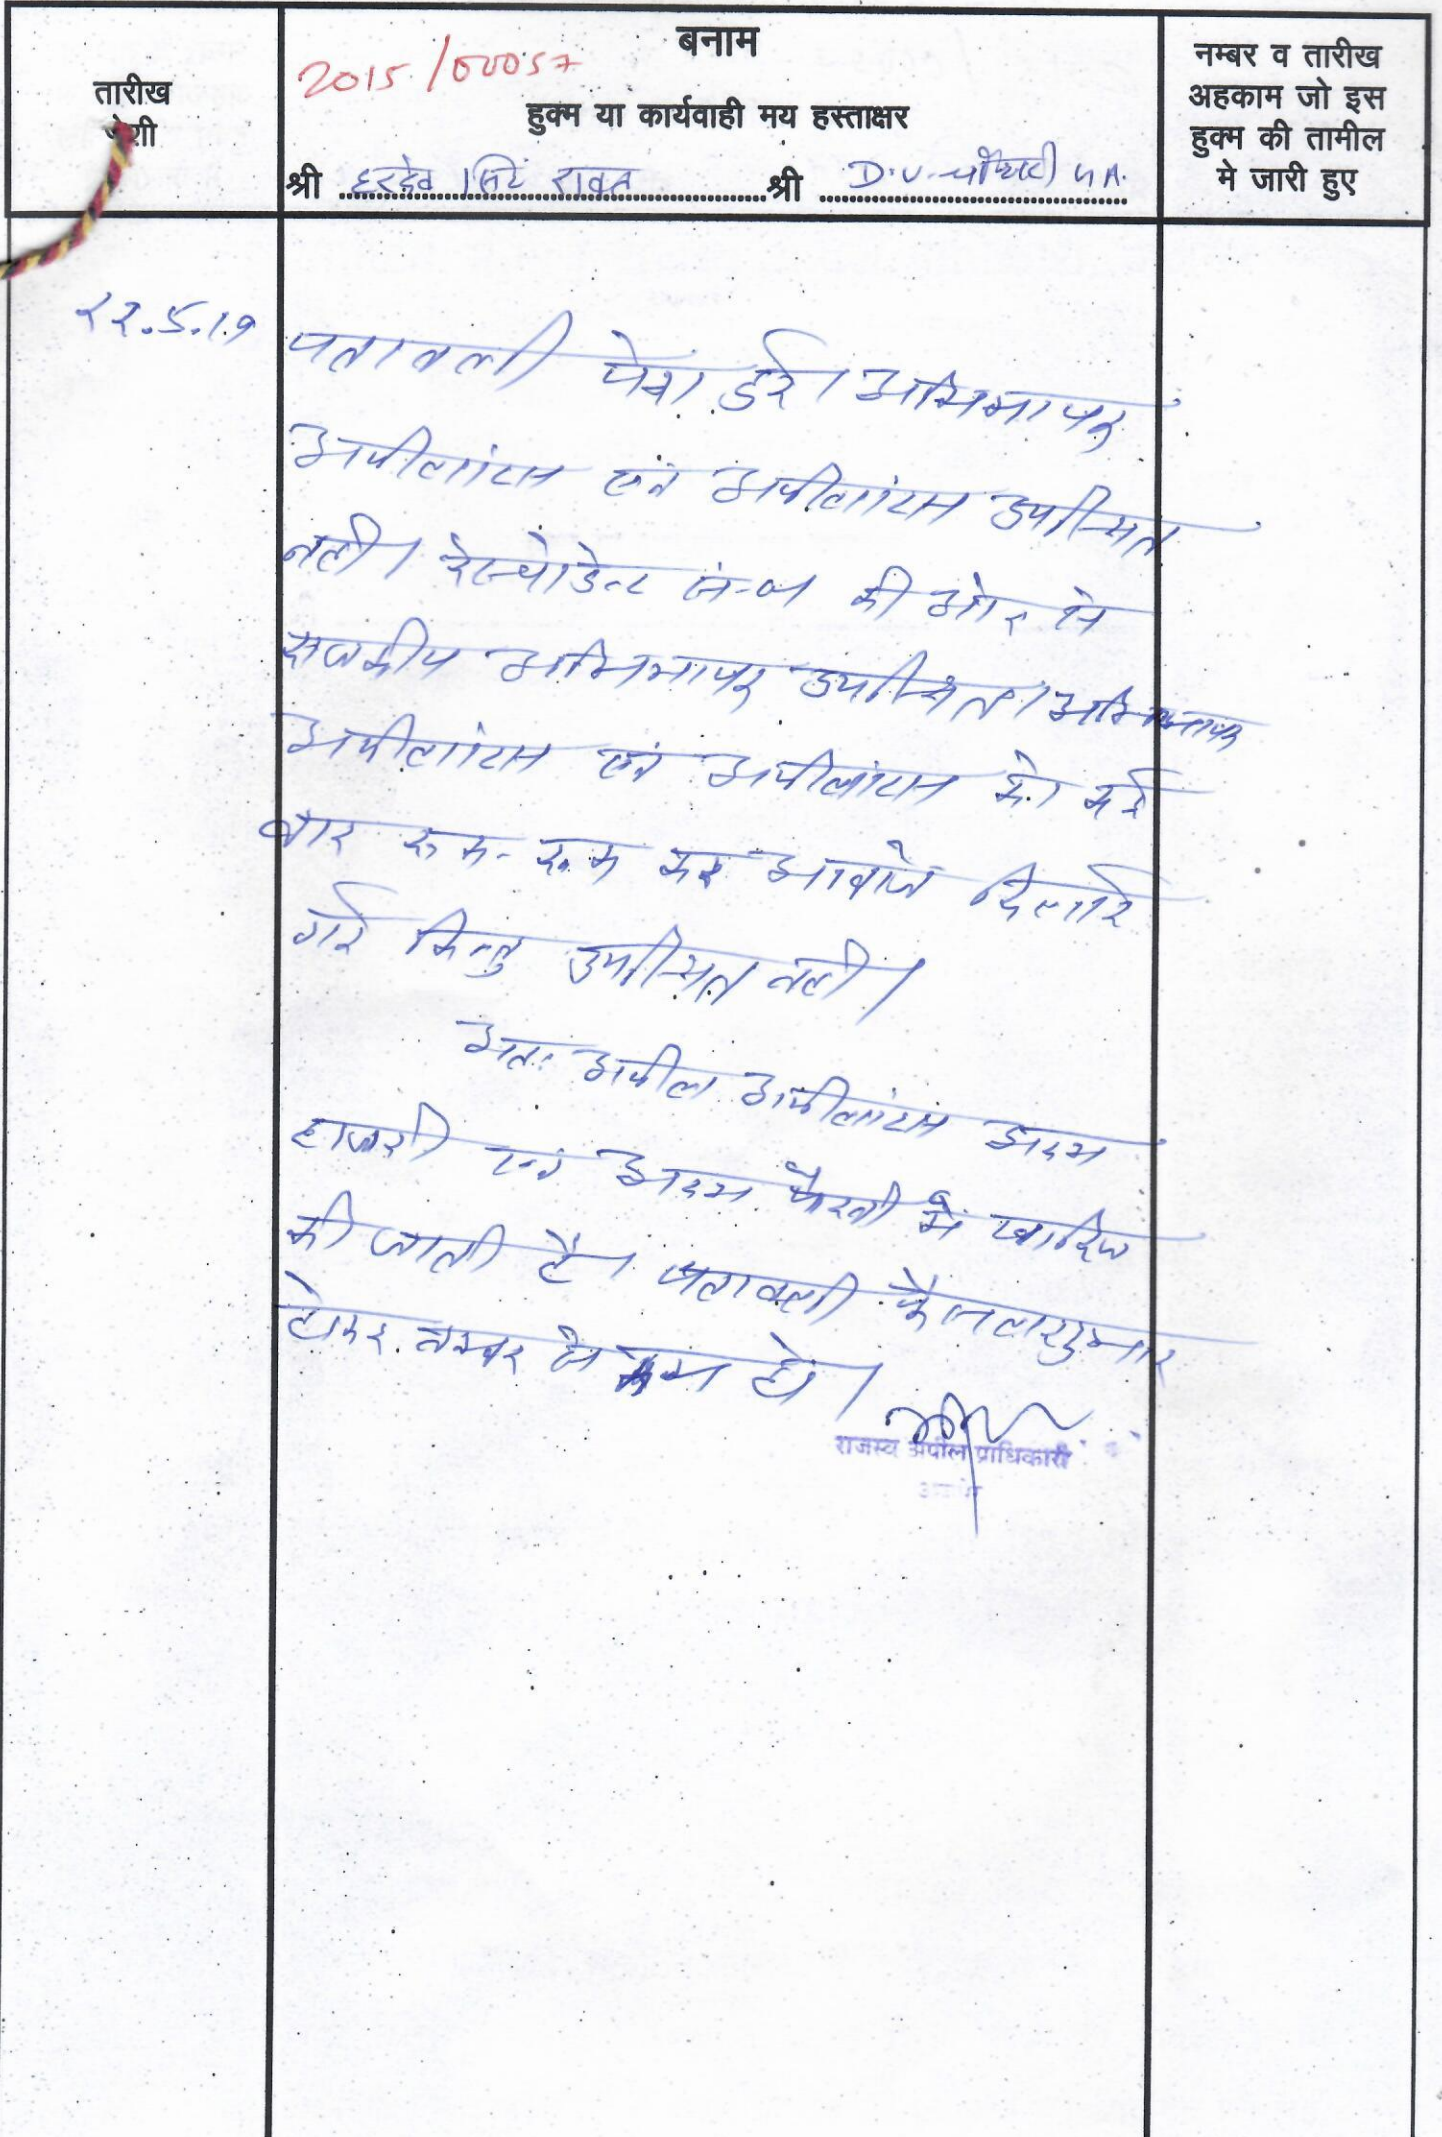 तारीख
पेशी
बनाम
2015/00057
हुक्म या कार्यवाही मय हस्ताक्षर
श्री हरदेव सिंह रावत श्री D.V. चौधरी
नम्बर व तारीख
अहकाम जो इस
हुक्म की तामील
मे जारी हुए
22.5.19
पत्रावली पेश हुई। अभिभाषक
अपीलांटस एवं अपीलांटस उपस्थित
नही। रेस्पोडेन्ट की ओर से
राजकीय अभिभाषक उपस्थित। अभिभाषक
अपीलांटस एवं अपीलांटस को कई
बार रूक-रूक कर आवाजे दिलाई
गई किन्तु उपस्थित नही।
अतः अपील अपीलांटस अदम
हाजरी एवं अदम पैरवी में खारिज
की जाती है। पत्रावली फैसलशुमार
होकर नम्बर से कम हो।
राजस्व अपील प्राधिकारी